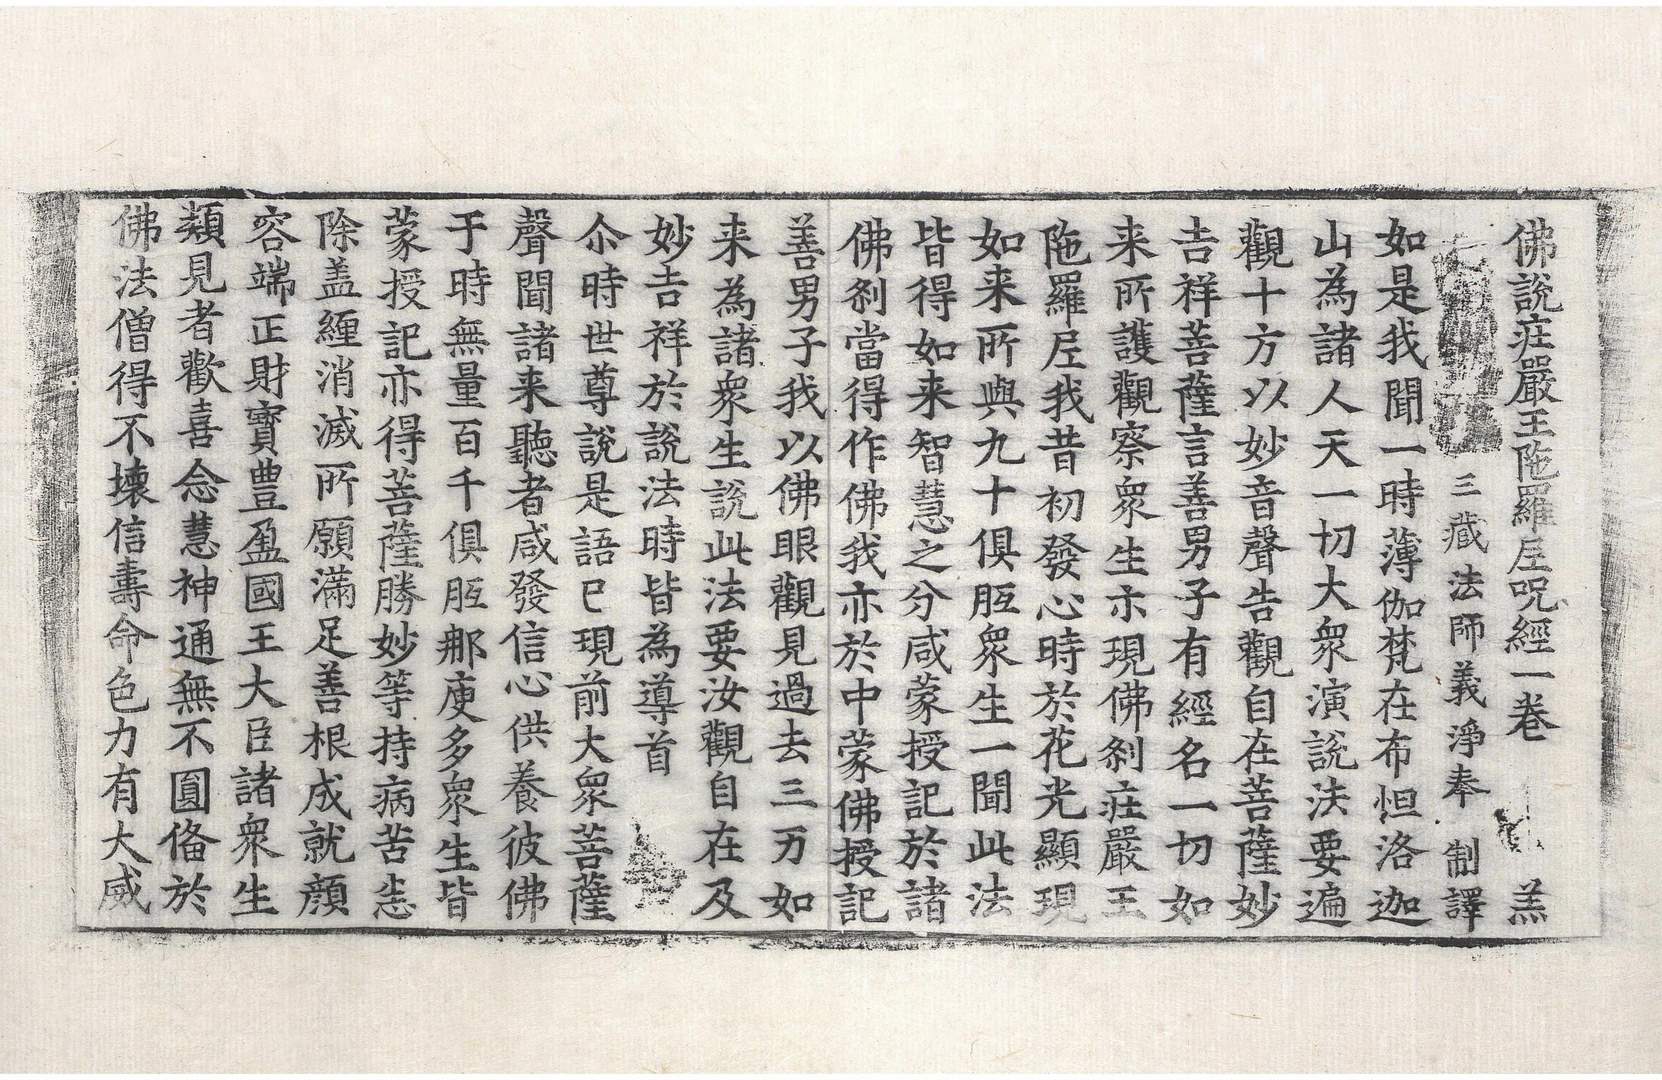 佛說庄嚴王陁羅𡰱呪經一卷 羔
三藏法師義淨奉 制譯
如是我聞一時薄伽梵在布怛洛迦
山為諸人天一切大衆演說法要遍
觀十方以妙音聲告觀自在菩薩妙
吉祥菩薩言善男子有經名一切如
来所護觀察衆生示現佛剎莊嚴王
陁羅𡰱我昔初發心時於花光顯現
如来所與九十俱胝衆生一聞此法
皆得如来智慧之分咸蒙授記於諸
佛剎當得作佛我亦於中蒙佛授記
善男子我以佛眼觀見過去三万如
来為諸衆生說此法要汝觀自在及
妙吉祥於說法時皆為導首
尒時世尊說是語已現前大衆菩薩
聲聞諸来聽者咸發信心供養彼佛
于時無量百千俱胝那庾多衆生皆
蒙授記亦得菩薩勝妙等持病苦恙
除盖纏消滅所願滿足善根成就顔
容端正財寳豊盈國王大臣諸衆生
類見者歡喜念慧神通無不圓俻於
佛法僧得不壞信壽命色力有大威